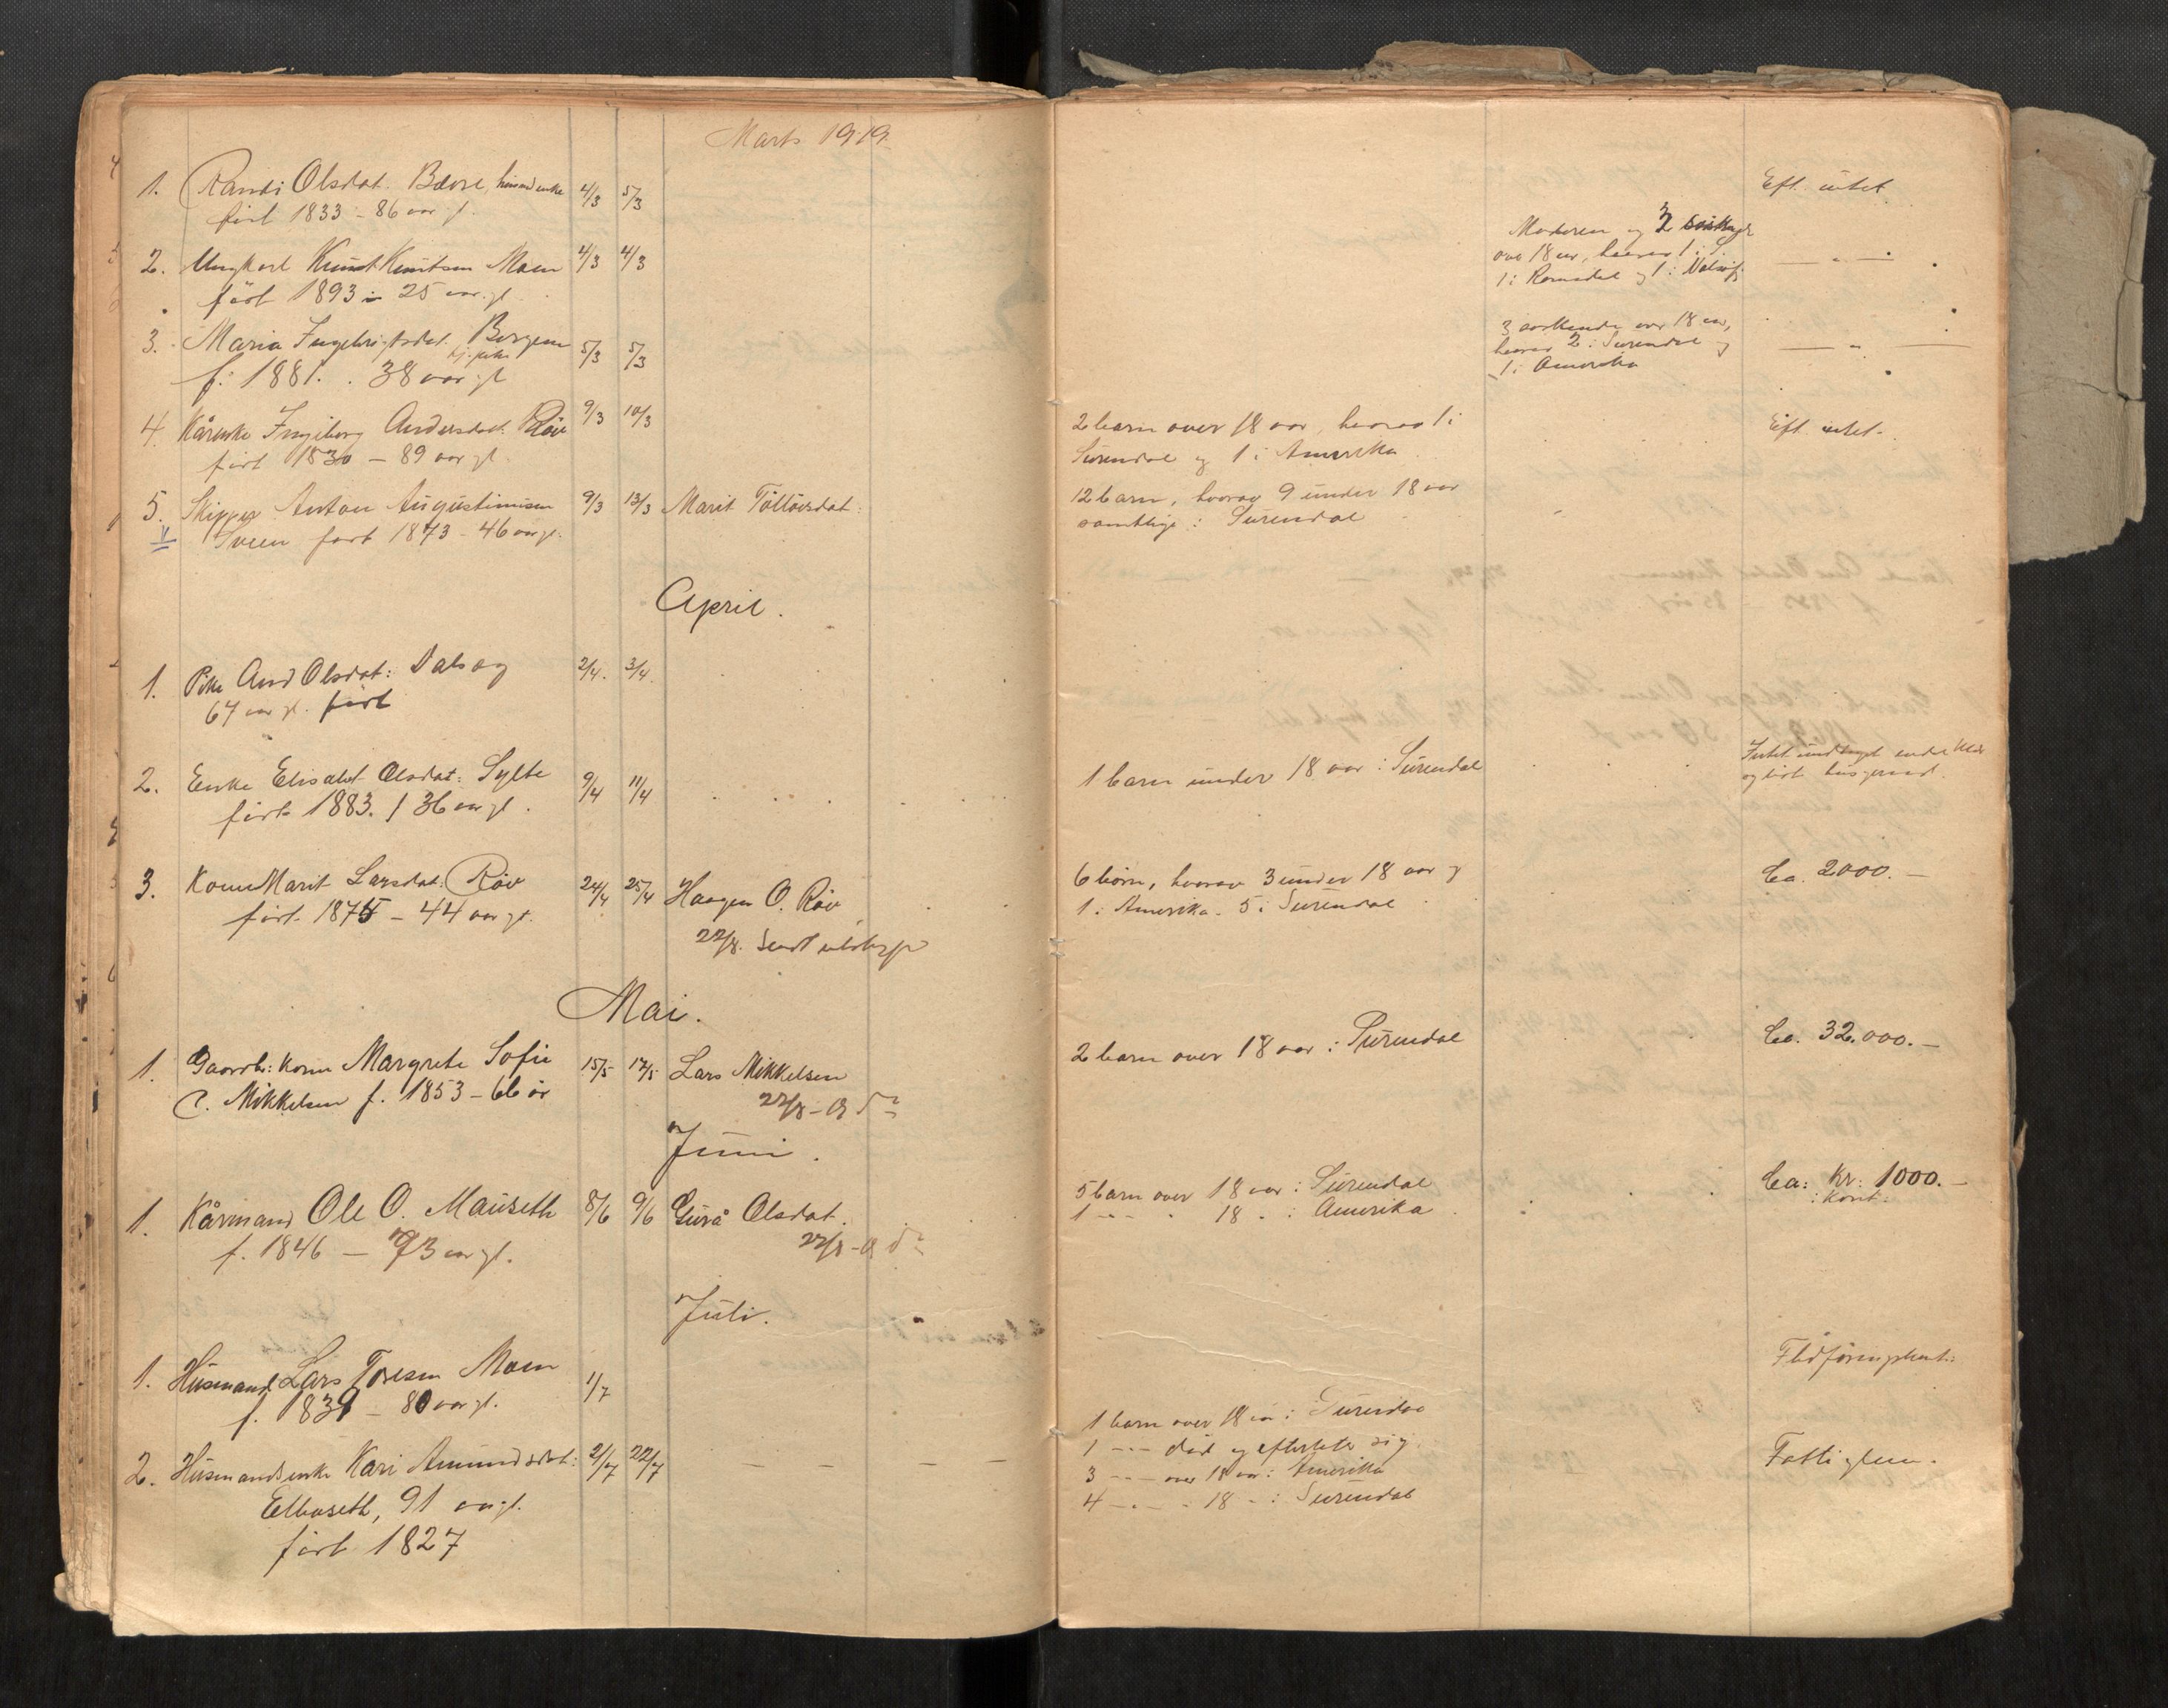 Marts 1919.
1. Randi Olsdat. Bævre, husmd enke 4/3 5/3 Eft. intet
født 1833 - 86 aar gl.
Moderen og 3 søskende
2. Ungkarl Knut Knutsen Moen 4/3 4/3 over 18 aar, hvorav 1 i S.
født 1893 - 25 aar gl. 1 i Romsdal og 1 i
3. Maria Ingebrigtsdat. Bergem 5/3 5/3 3 søskende over 18 aar,
f. 1881. 38 aar gl hvorav 2 i Surendal og
1 i Amerika
4. Kårenke Ingeborg Andersdat. Røv 9/3 10/3 2 barn over 18 aar, hvorav 1 i Eft. intet.
født 1830 - 89 aar gl. Surendal og 1 i Amerika
5. Skipper Anton Augustinusen 9/3 13/3 Marit Tølløvsdat: 12 barn, hvorav 9 under 18 aar
V Sveen født 1873 - 46 aar gl: samtlige i Surendal
April.
1. Pike And Olsdat: Dalsøg 2/4. 3/4.
67 aar gl. født
2. Enke Elisabet Olsdat: Sylte 9/4 11/4 1 barn under 18 aar i Surendal Intet undtagt endel klær
født 1883. / 36 aar gl. og lidt husgeraad.
3. Kone Marit Larsdat: Røv 24/4 25/4 Haagen O. Røv 6 børn, hvorav 3 under 18 aar og Ca. 2000.-
født 1875 - 44 aar gl. 1 i Amerika. 5 i Surendal
22/8. Sendt
Mai.
1. Gaardb: kone Margrete Sofie 15/5 17/5 Lars Mikkelsen 2 barn over 18 aar i Surendal Ca. 32.000.-
C. Mikkelsen f. 1853 - 66 år
22/8-19
Juni.
1. Kårmand Ole O. Mauseth 8/6 9/6 Gurå Olsdat. 5 barn over 18 aar i Surendal Ca: kr: 1000.-
f. 1846 - 73 aar gl. 1 - - - 18 - i Amerika
22/8-19
Juli.
1. Husmand Lars Toresen Moen 1/7
f. 1839 - 80 aar gl.
1 barn over 18 aar i Surendal
2. Husmandsenke Kari Amundsdat: 21/7 22/7 - - - - 1 - - - død og efterlate sig Fattiglem.
Elbaseth, 91 aar gl. 3 - - - over 18 aar i Amerika
født 1827 4 - - - 18 - i Surendal